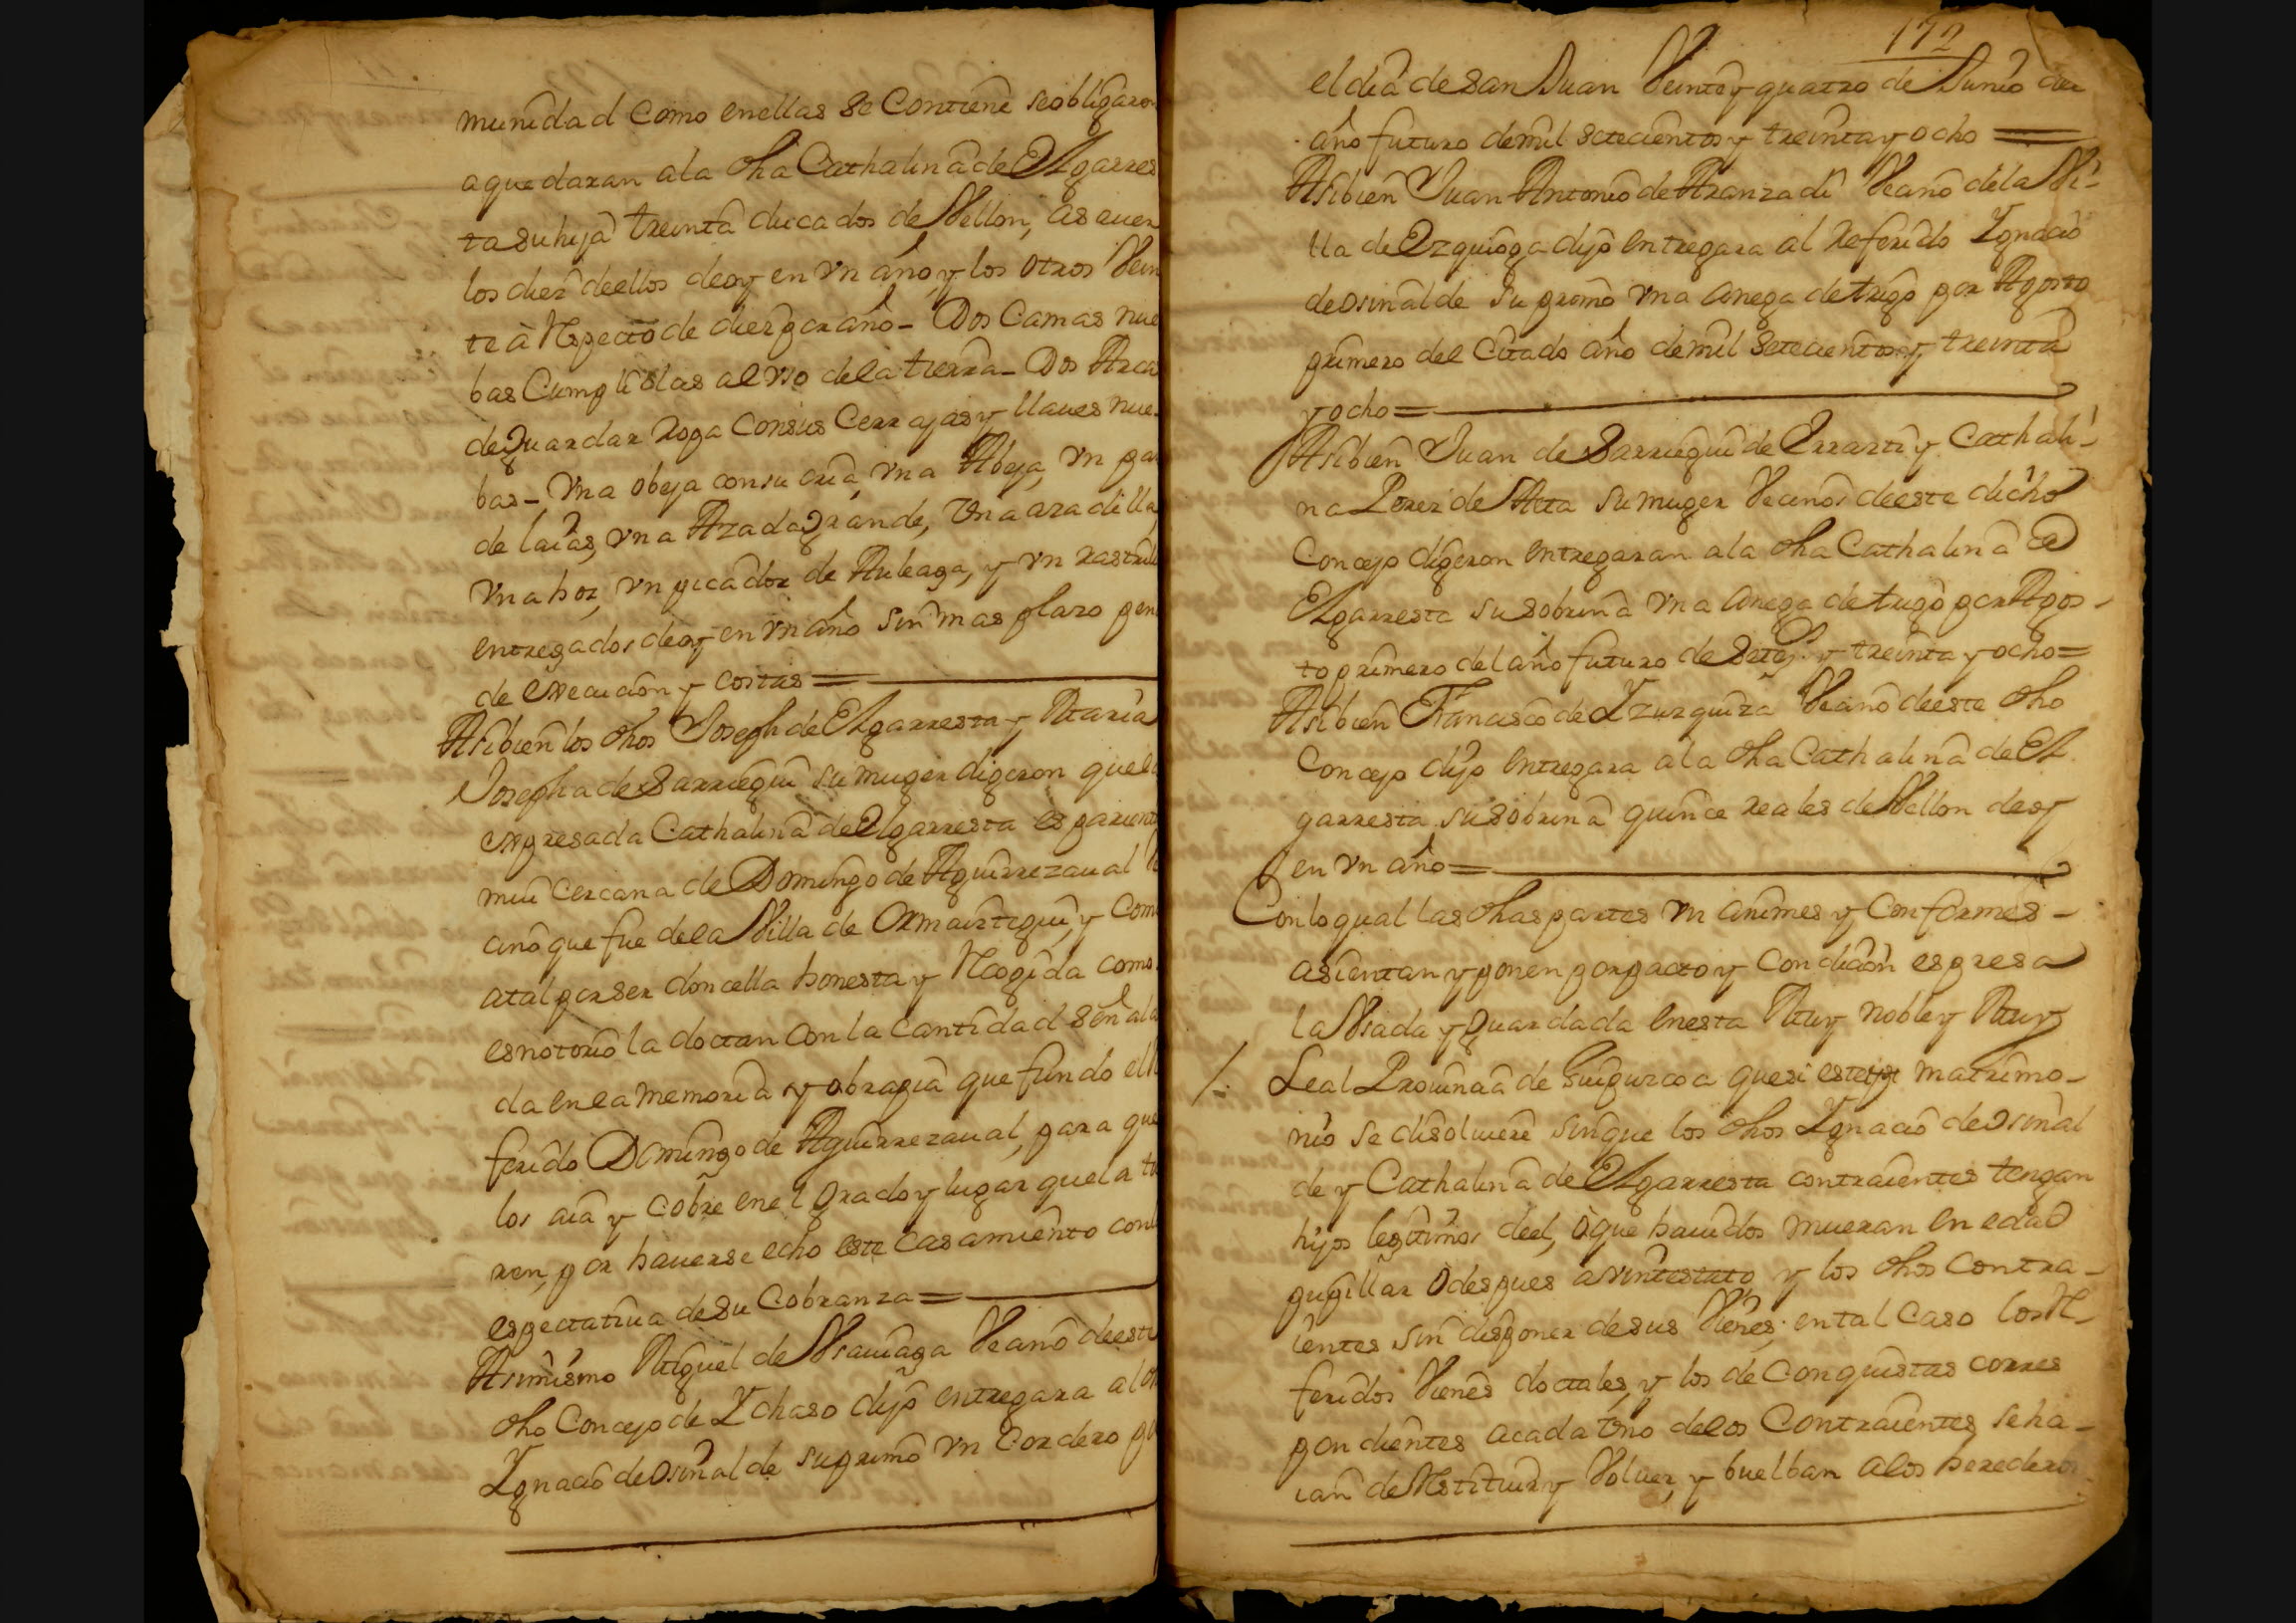 munidad como enellas se Contiene seobligaron
aque daran ala dha Cathalina de Elgarres
ta su hija treinta ducados de Vellon, as cuer
los diez deellos deoy en vn año, y los otros Vein
te à Respecto de diez por año - Dos Camas nue
bas Cumplidas al vso dela tierra - Dos Arca
de guardar Ropa Consus Cerrajas y llaues nue-
bas - vna obeja consu cria, vna Abeja, vn pa
de laias, vna Azada grande, vna azadilla,
vna hoz, vn picador de Auleaga, y vn rastrill
entregados deoy en vn año sin mas plazo pen
de execucion y costas =
Asibien los dhos Joseph de Elgarresta y Maria
Josepha de Sarriegui su muger digeron quela
expresada Cathalina de Elgarresta es parient
mui cercana de Domingo de Aguirrezaual Ve
cino que fue dela Villa de Ormaiztegui, y com
atal por ser doncella honesta y Recogida como
es notorio la doctan con la cantidad señala
da en la memoria y obra pia que fundo el R
ferido Domingo de Aguirrezaual, para que
los aia y cobre en el grado y lugar quela to
ren, por hauerse echo este casamiento con
espectatiua de su Cobranza =
Asimismo Miguel de Vsauiaga Vecino deeste
dho Concejo de Ychaso dijo entregara al d
Ygnacio de Osinalde su primo vn Cordero p
172
el dia de San Juan Veinte y quatro de Junio del
año futuro de mil setecientos y treinta y ocho =
Asibien Juan Antonio de Aranzadi Vecino dela Vi-
lla de Ezquioga dijo entregara al Referido Ygnacio
de Osinalde su primo vna anega de trigo por Agosto
primero del Citado año de mil setecientos y treinta
y ocho =
Asibien Juan de Sarriegui de Errarti y Cathali-
na Perez de Atta su muger Vecinos deeste dicho
Concejo digeron entregaran ala dha Cathalina de
Elgarresta su sobrina vna anega de trigo por Agos-
to primero del año futuro de Setez. y treinta y ocho =
Asibien Francisco de Yzurquiza Vecino deeste dho
Concejo dijo entregara ala dha Cathalina de El
garresta su sobrina quince reales de Vellon deoy
en vn año =
Conlo qual las dhas partes vn animes y Conformes -
asientan y ponen por pacto y Condicion espresa
la Vsada y guardada en esta Muy noble y Muy
/. Leal Prouincia de Guipuzcoa que si este matrimo-
nio se disoluiere sin que los dhos Ygnacio de Osinal
de y Cathalina de Elgarresta contraientes tengan
hijos legitimos deel, ò que hauidos mueran en edad
pupillar o despues avintestato y los dhos Contra-
ientes sin disponer de sus Vienes; en tal Caso los Re-
feridos Vienes doctales, y los de Conquistas corres
pondientes acada vno delos Contraientes se ha-
ian de Restituir y Voluer, y buelban alos herederos